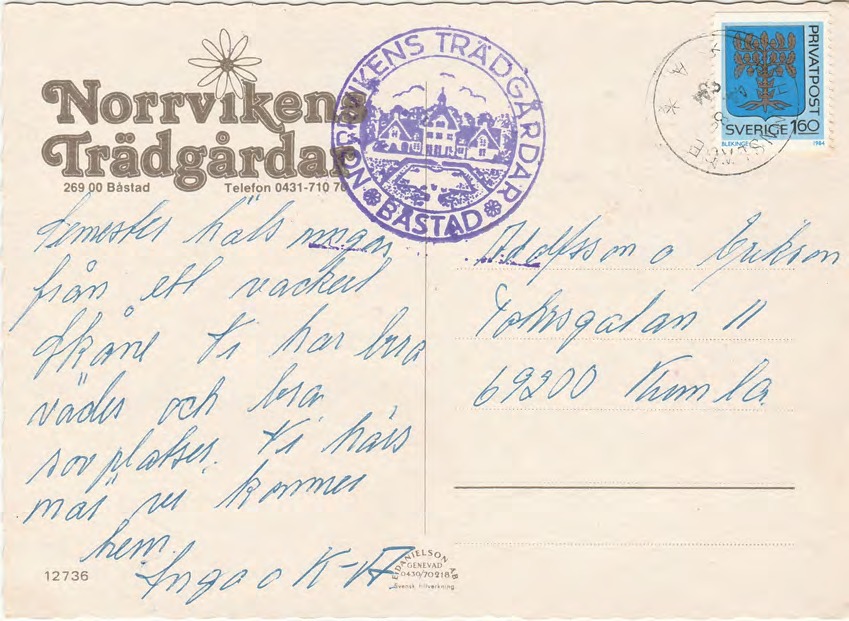 Norrvikens
Trädgårdar
269 00 Båstad Telefon 0431-710 70
NORRVIKENS TRÄDGÅRDAR
BÅSTAD
PRIVATPOST
SVERIGE 160
BLEKINGE 1984
Semester hälsningar
från ett vackert
Skåne Vi har bra
väder och bra
sov platser. Vi hörs
när vi kommer
hem.
Inga o K-A
Adolfsson o Erikson
Tohrsgatan 11
69200 Kumla
12736
DANIELSON
GENEVAD
0430/70218
AB
Svensk tillverkning